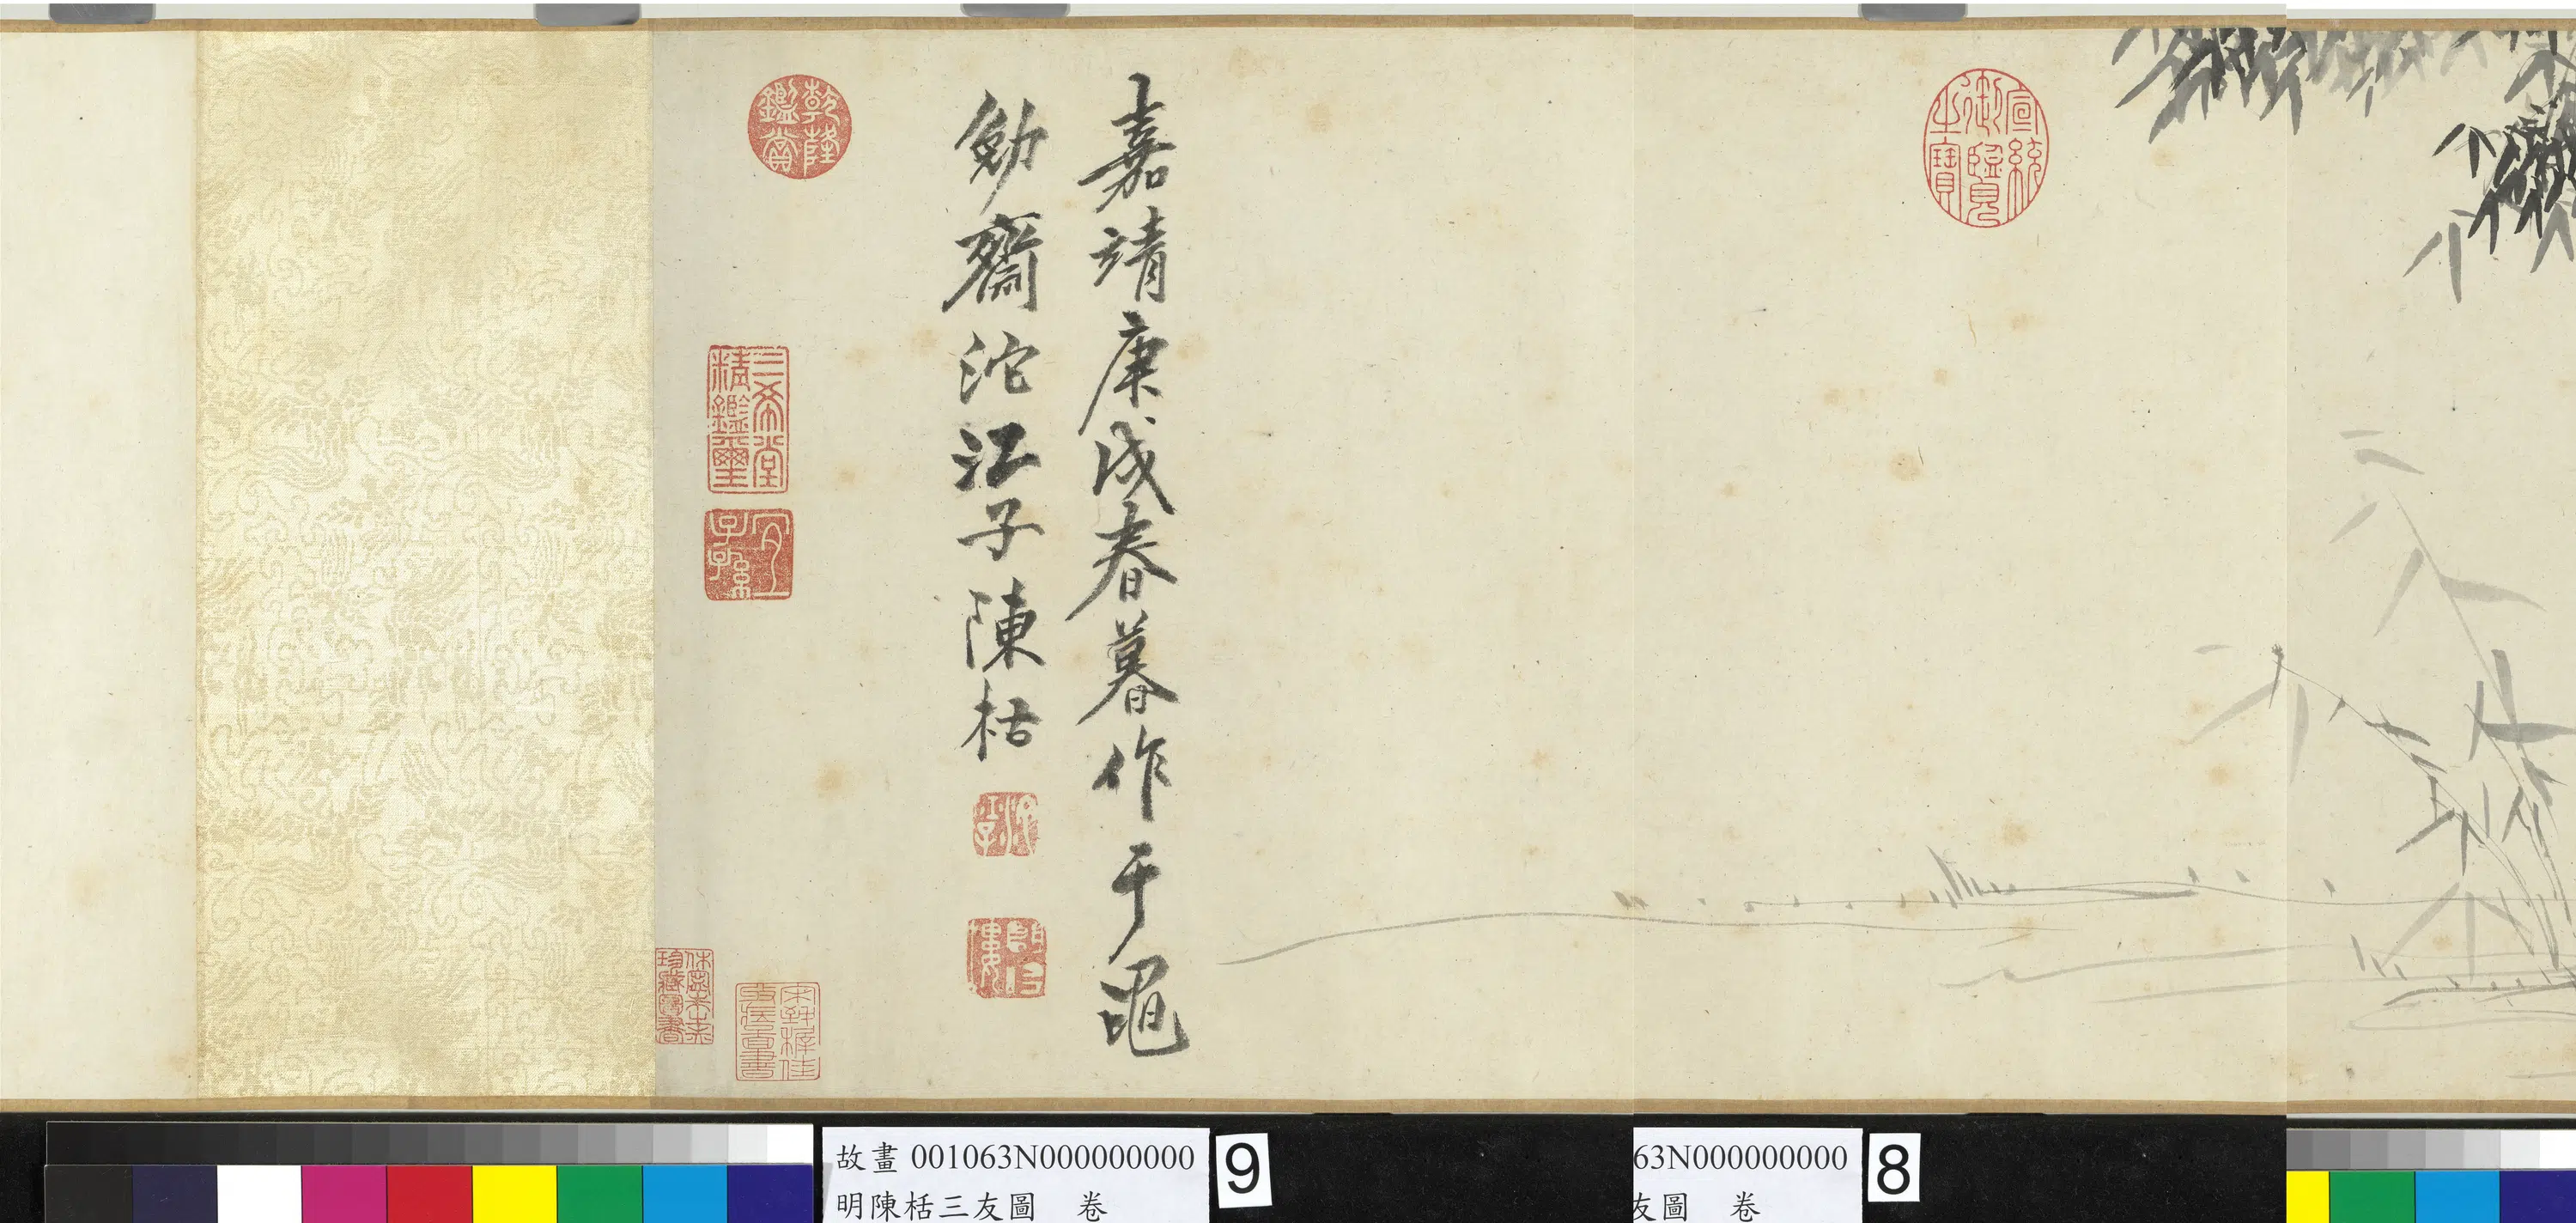 宣統御覽之寶
嘉靖庚戌春暮作于黽
勉齋沱江子陳栝
乾隆鑑賞
三希堂精鑑璽
宜子孫
休寧朱之赤珍藏圖書
故畫 001063N000000000
明陳栝三友圖 卷
9
63N000000000
友圖 卷
8